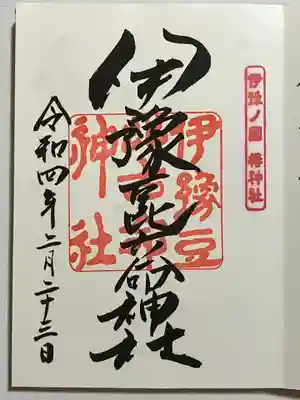 伊豫ノ國 椿神社
伊豫豆比古命神社
伊豫豆
神社
令和四年二月二十三日